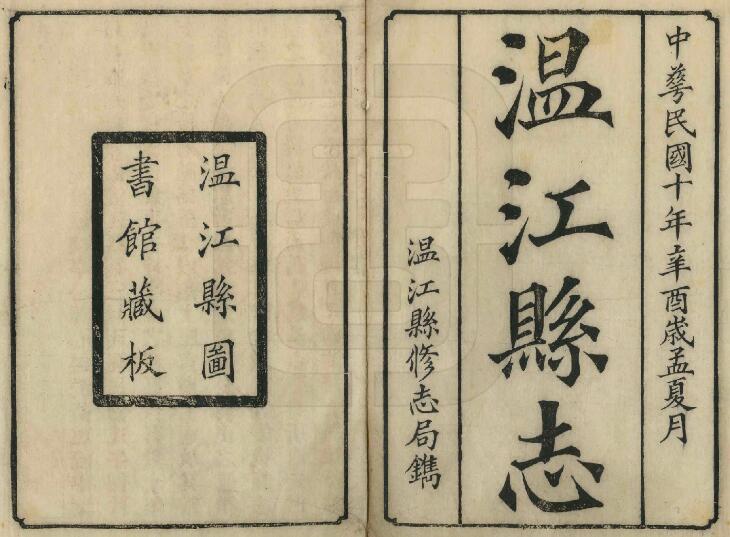 中華民國十年辛酉歲孟夏月
温江縣志
温江縣修志局鐫
温江縣圖
書館藏板